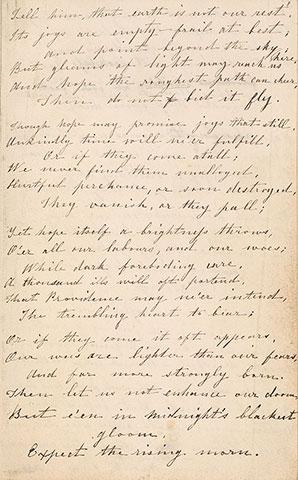 Tell him, that earth is not our rest
Its joys are empty - frail at best;
And point beyond the sky;
But gleams of light may reach us here,
And hope the roughest path can cheer,
Then do not bid it fly.
Though hope may promise joys that still,
Unkindly time will ne'er fulfill,
Or if they come at all,
We never find them unalloyed,
Hurtful perchance, or soon destroyed,
They vanish, or they pall;
Yet hope itself a brightness throws,
O'er all our labours, and our woes;
While dark foreboding care,
A thousand ills will oft portend,
That Providence may ne'er intend,
The trembling heart to bear;
Or if they come it oft appears,
Our woes are lighter than our fears,
And far more strongly born.
Then let us not enhance our doom,
But e'en in midnight's blackest
gloom,
Expect the rising morn.